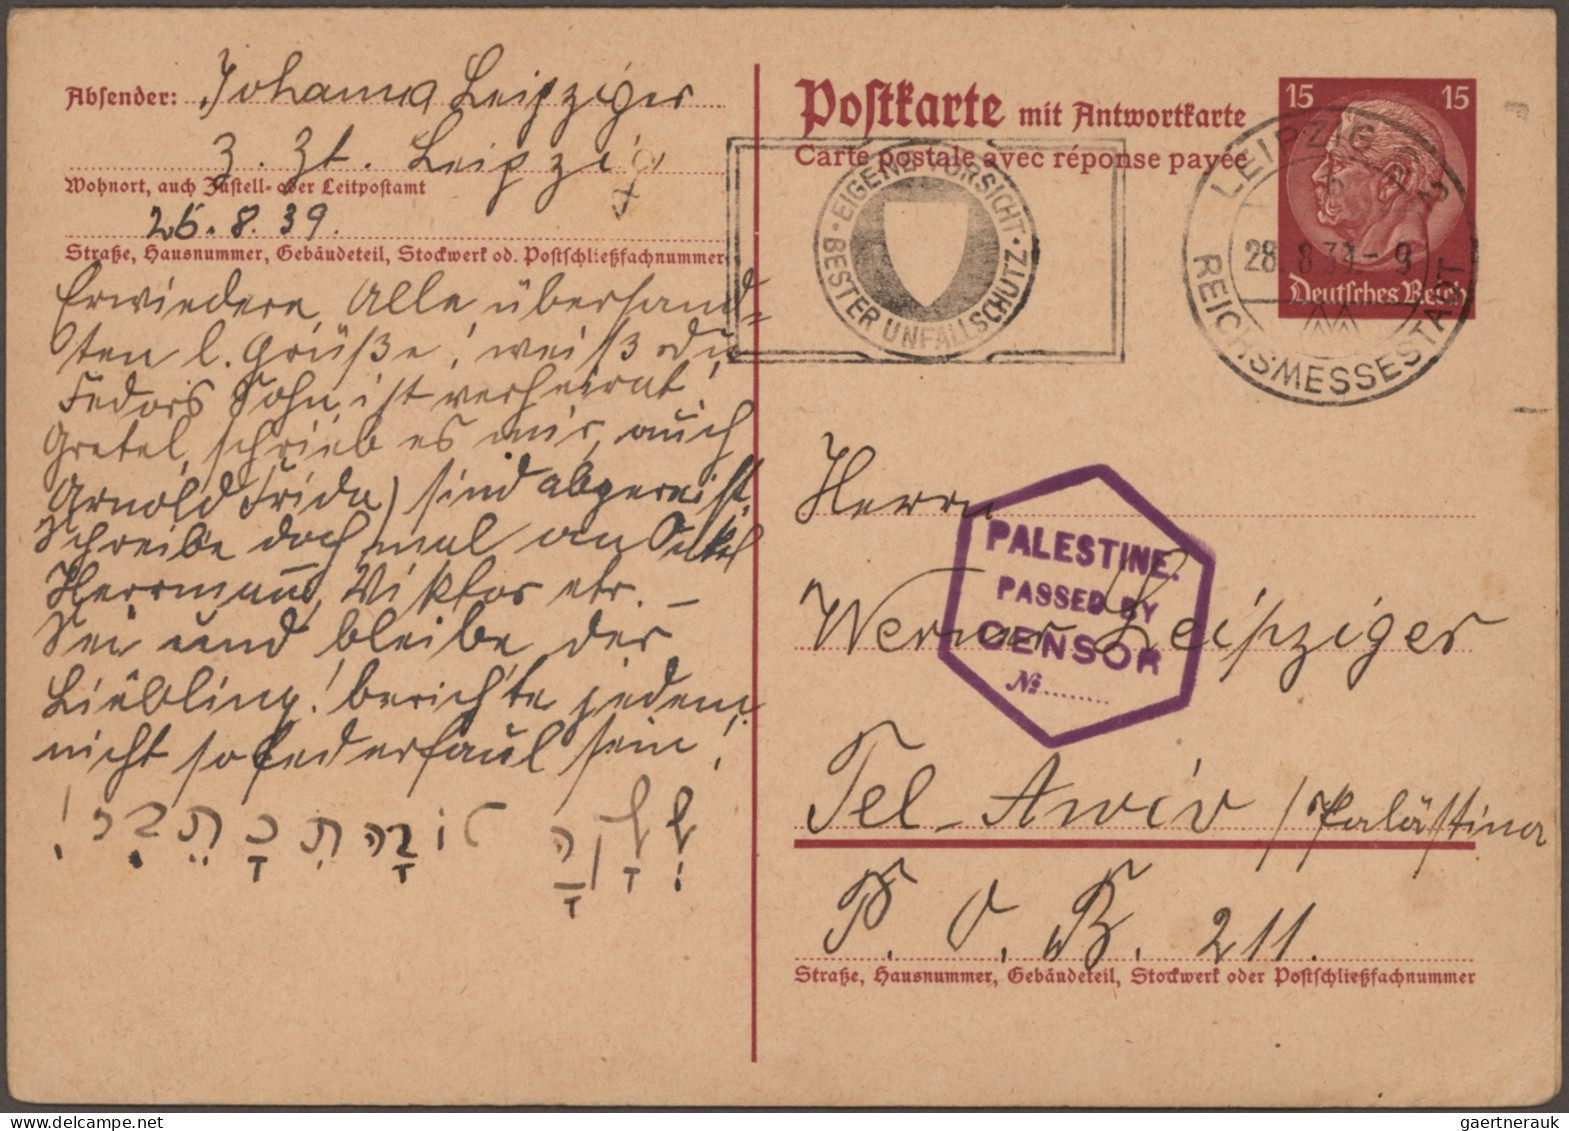 Absender: Johanna Leipziger
z. Zt. Leipzig
Wohnort, auch Zustell- oder Leitpostamt
26.8.39.
Straße, Hausnummer, Gebäudeteil, Stockwerk od. Postschließfachnummer
Erwiedere Alle übersand-
ten l. Grüße! weißt du
Fedors Sohn ist verheirat!
Gretel schrieb es mir, auch
Arnold Frida) sind abgereist.
Schreibe doch mal an Onkel
Herrmann, Viktor etc. –
Sei und bleibe der
Liebling! berichte jedem
nicht so federfaul sein!
Postkarte mit Antwortkarte
Carte postale avec réponse payée
EIGENE VORSICHT · BESTER UNFALLSCHUTZ ·
15 15
Deutsches Reich
LEIPZIG
28.8.39.-9
REICHSMESSESTADT
Herrn
PALESTINE.
PASSED BY
CENSOR
№........
Werner Leipziger
Tel-Awiv /Palästina
P. O. B. 211.
Straße, Hausnummer, Gebäudeteil, Stockwerk oder Postschließfachnummer
gaertnerauk